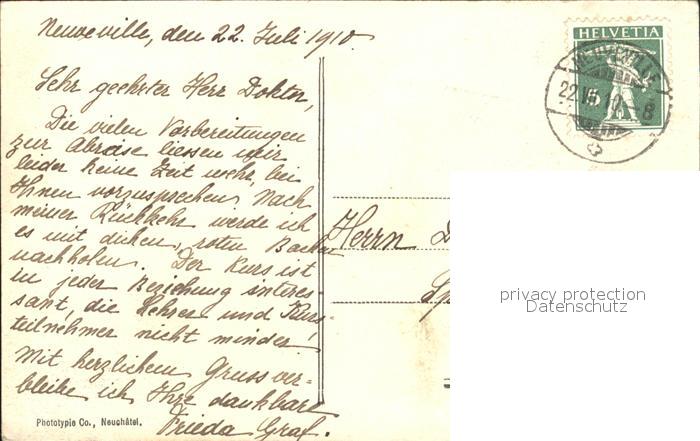 Neuveville, den 22. Juli 1910.
HELVETIA
NEUVEVILLE
22.VII.10.-8
Sehr geehrter Herr Doktor,
Die vielen Vorbereitungen
zur Abreise liessen mir
leider keine Zeit mehr, bei
Ihnen vorzusprechen. Nach
meiner Rückkehr werde ich
es mit dicken, roten Backen
nachholen. Der Kurs ist
in jeder Beziehung interes-
sant, die Lehrer und Kurs-
teilnehmer nicht minder!
Mit herzlichem Gruss ver-
bleibe ich Ihre dankbare
Frieda Graf.
Herrn D
Sp
privacy protection
Datenschutz
Phototypie Co., Neuchâtel.